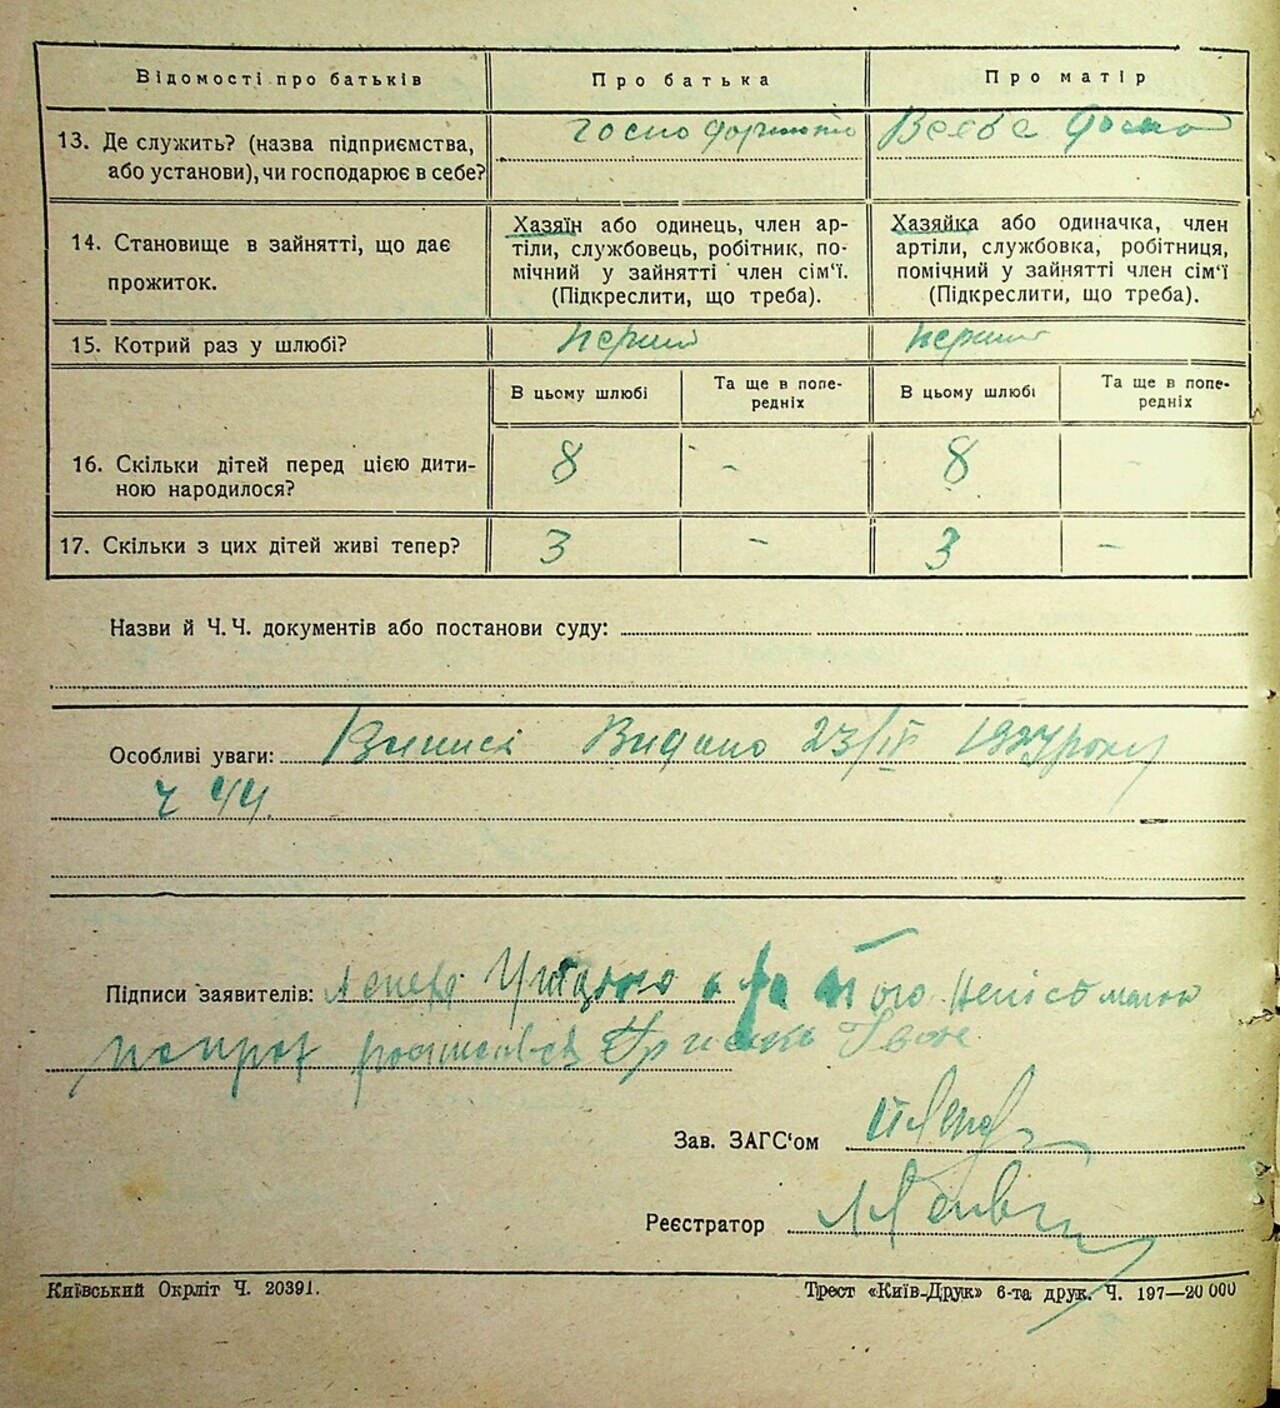 Відомості про батьків
Про батька
Про матір
13. Де служить? (назва підприємства,
або установи), чи господарює в себе?
14. Становище в зайнятті, що дає
прожиток.
Хазяїн або одинець, член ар-
тіли, службовець, робітник, по-
мічний у зайнятті член сім'ї.
(Підкреслити, що треба).
Хазяйка або одиначка, член
артіли, службовка, робітниця,
помічний у зайнятті член сім'ї
(Підкреслити, що треба).
15. Котрий раз у шлюбі?
перший
перший
В цьому шлюбі
Та ще в попе-
редніх
В цьому шлюбі
Та ще в попе-
редніх
16. Скільки дітей перед цією дити-
ною народилося?
8 - 8 -
17. Скільки з цих дітей живі тепер?
3 - 3 -
Назви й Ч.Ч. документів або постанови суду:
Особливі уваги: Видано 23/IV року
ч 44.
Підписи заявителів:
Зав. ЗАГС'ом
Реєстратор
Київський Окрліт Ч. 20391.
Трест «Київ-Друк» 6-та друк. Ч. 197—20 000